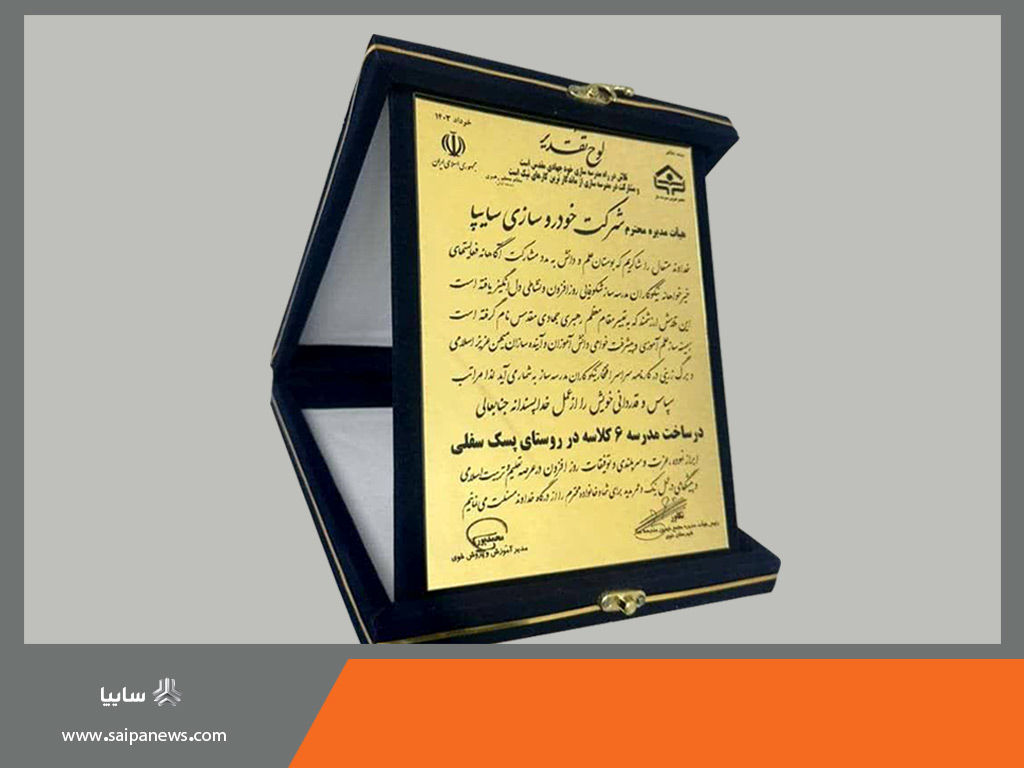 خرداد ۱۴۰۳
جمهوری اسلامی ایران
لوح تقدیر
تلاش در راه مدرسه سازی خود جهادی مقدس است
و مشارکت در مدرسه سازی از ماندگار ترین کارهای نیک است
هیأت مدیره محترم شرکت خودرو سازی سایپا
خداوند متعال را شاکریم که بوستان علم و دانش به مدد مشارکت آگاهانه فعالیتهای
خیرخواهانه نیکوکاران مدرسه ساز شکوفایی روز افزون و نشاطی دل انگیز یافته است
این تلاش ارزشمند که به تعبیر مقام معظم رهبری جهادی مقدس نام گرفته است
زمینه ساز علم آموزی و پیشرفت خواهی دانش آموزان و آینده سازان میهن عزیز اسلامی
و برگ زرینی در کارنامه سراسر افتخار نیکوکاران مدرسه ساز به شمار می آید لذا مراتب
سپاس و قدردانی خویش را از عمل خداپسندانه جنابعالی
در ساخت مدرسه ۶ کلاسه در روستای پسک سفلی
ابراز نموده، عزت و سربلندی و توفیقات روز افزون در عرصه تعلیم و تربیت اسلامی
و عمر مدید برای شما و خانواده محترم را از درگاه خداوند مسئلت می نمایم
محمدپور
مدیر آموزش و پرورش خوی
سایپا
www.saipanews.com